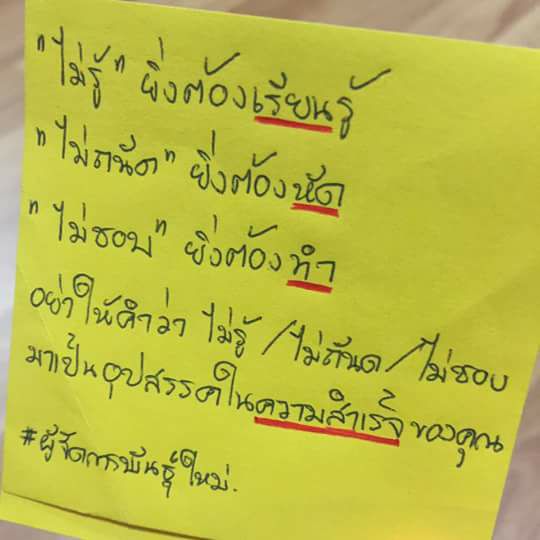 "ไม่รู้" ยิ่งต้องเรียนรู้
"ไม่ถนัด" ยิ่งต้องหัด
"ไม่ชอบ" ยิ่งต้องทำ
อย่าให้คำว่า ไม่รู้ /ไม่ถนัด /ไม่ชอบ
มาเป็นอุปสรรคในความสำเร็จของคุณ
#ผู้จัดการพันธุ์ใหม่.